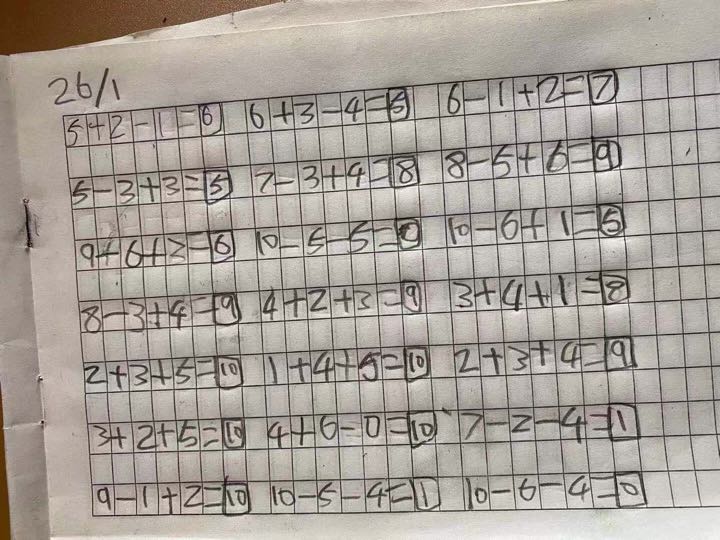 26/1
5+2-1=6 6+3-4=5 6-1+2=7
5-3+3=5 7-3+4=8 8-5+6=9
9+6+3=6 10-5-5=0 10-6+1=5
8-3+4=9 4+2+3=9 3+4+1=8
2+3+5=10 1+4+5=10 2+3+4=9
3+2+5=10 4+6-0=10 7-2-4=1
9-1+2=10 10-5-4=1 10-6-4=0